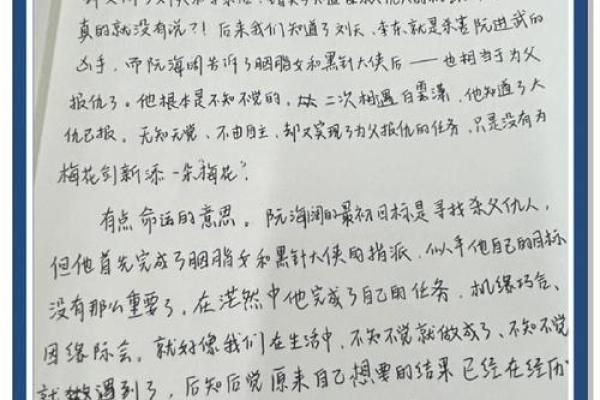 真的就没有说?!后来我们知道了刘天、李东就是杀害阮进武的
凶手,而阮海阔告诉了胭脂女和黑针大侠后——也相当于为父
报仇了。他根本是不知不觉的,二次相遇白雲潇,他知道了大
仇已报。无知无觉、不由自主,却又实现了为父报仇的任务,只是没有为
梅花剑新添一朵梅花?
有点命运的意思。阮海阔的最初目标是寻找杀父仇人,
但他首先完成了胭脂女和黑针大侠的指派,似乎他自己的目标
没有那么重要了,在茫然中他完成了自己的任务,机缘巧合、
因缘际会。就好像我们在生活中,不知不觉就做成了、不知不觉
就遇到了,后知后觉原来自己想要的结果已经在经历